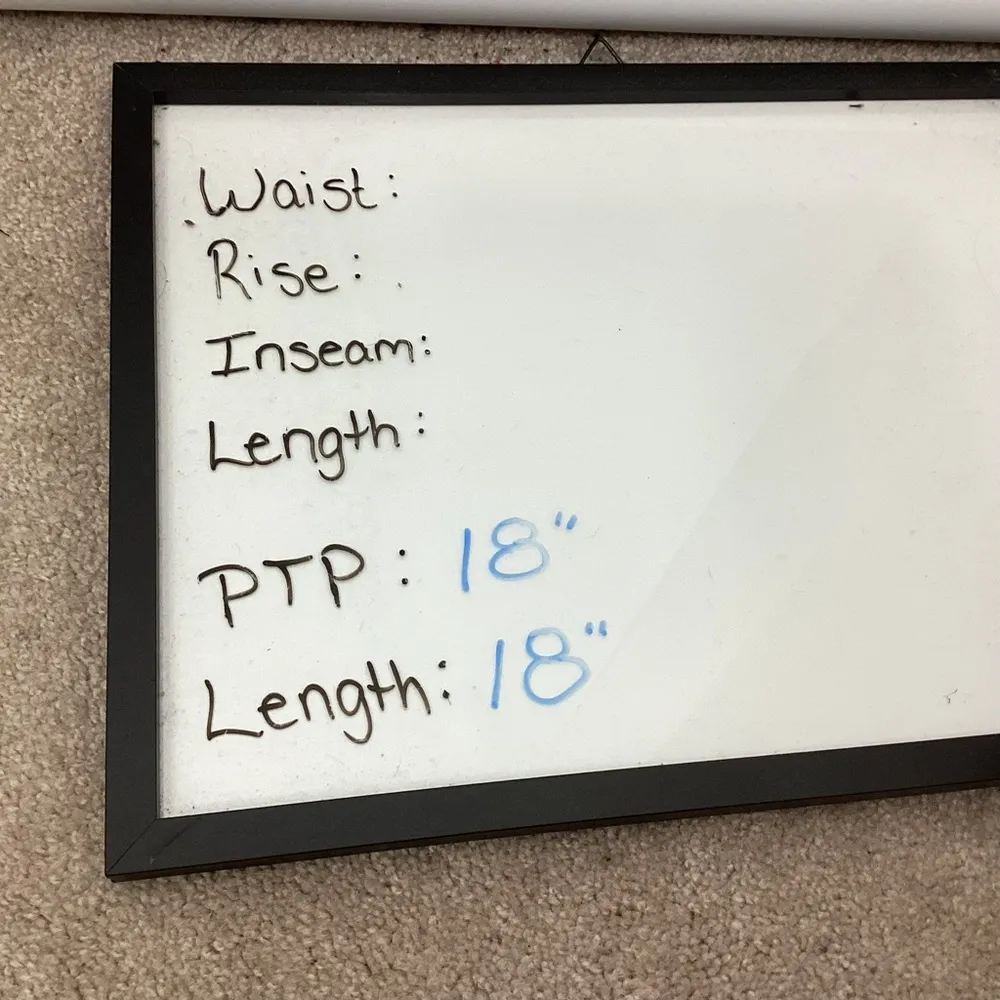 Waist:
Rise:
Inseam:
Length:
PTP: 18"
Length: 18"